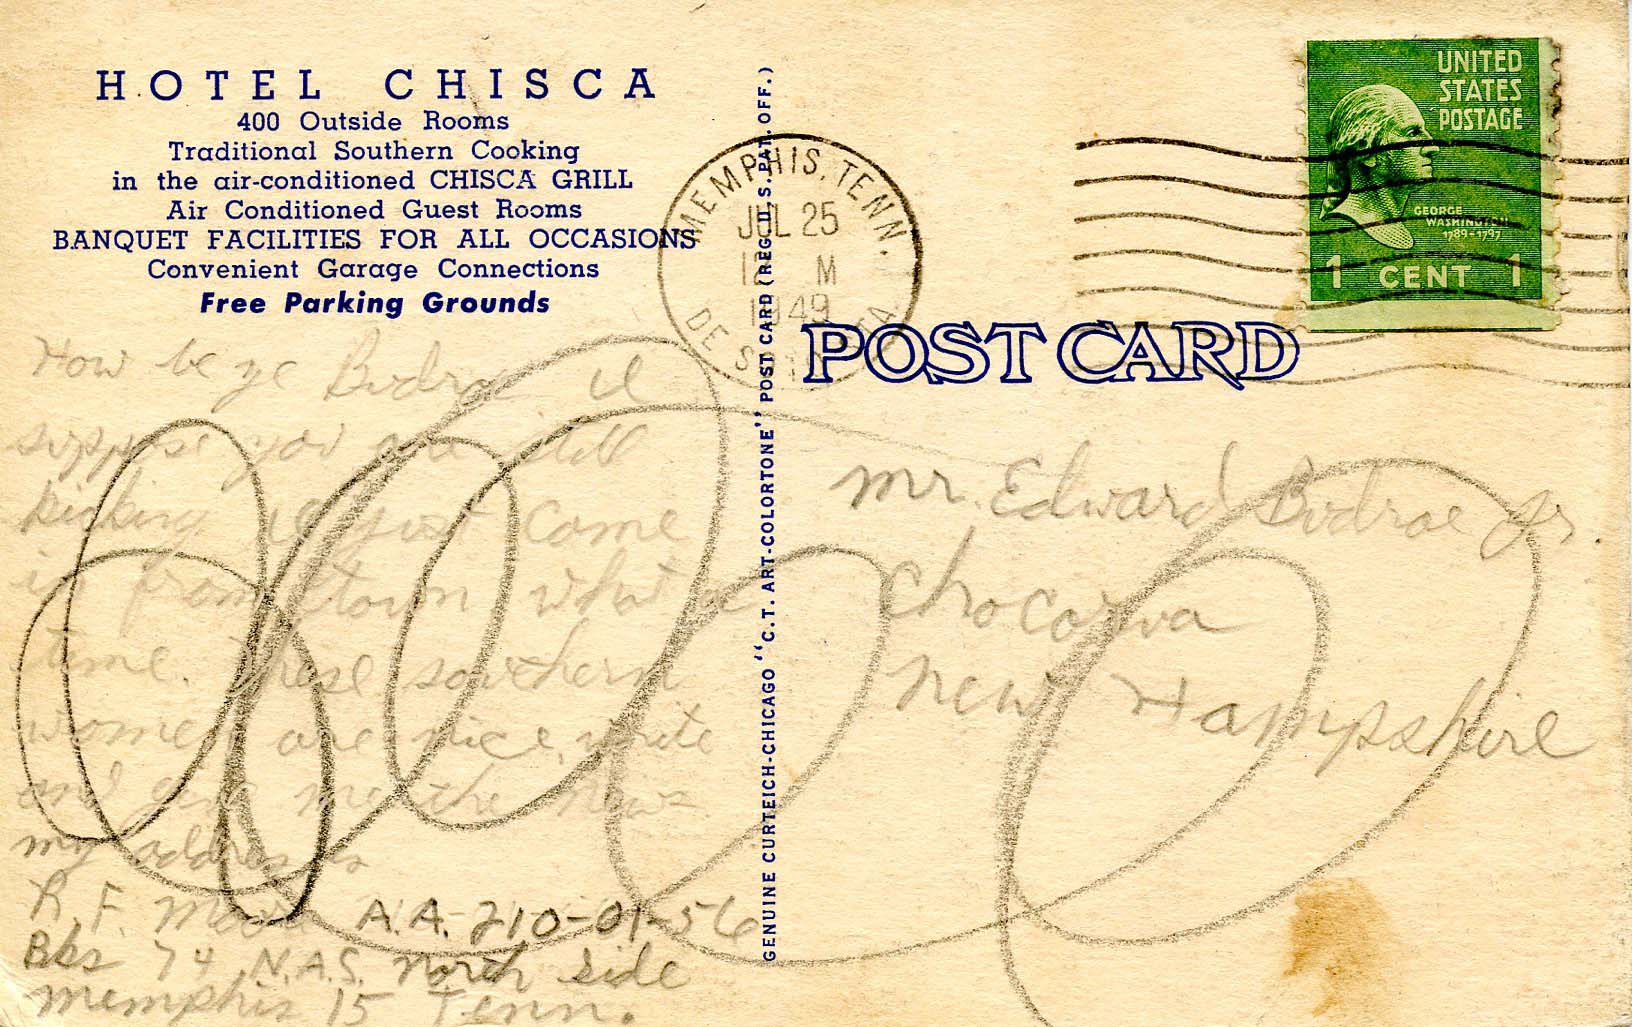 HOTEL CHISCA
400 Outside Rooms
Traditional Southern Cooking
in the air-conditioned CHISCA GRILL
Air Conditioned Guest Rooms
BANQUET FACILITIES FOR ALL OCCASIONS
Convenient Garage Connections
Free Parking Grounds
How be ye Budroe I
suppose you are still
kicking I just come
in from town what a
time. these southern
women are nice, write
and give me the news
my address is
R. F. A.A. 210-01-56
Bks 74 N.A.S. North Side
Memphis 15 Tenn.
GENUINE CURTEICH-CHICAGO "C.T. ART-COLORTONE" POST CARD (REG. U.S. PAT. OFF.)
MEMPHIS, TENN.
JUL 25
12 M
1949
DE STA.
UNITED
STATES
POSTAGE
GEORGE
WASHINGTON
1789-1797
1 CENT 1
POST CARD
Mr. Edward Budroe Jr.
Chocorua
New Hampshire